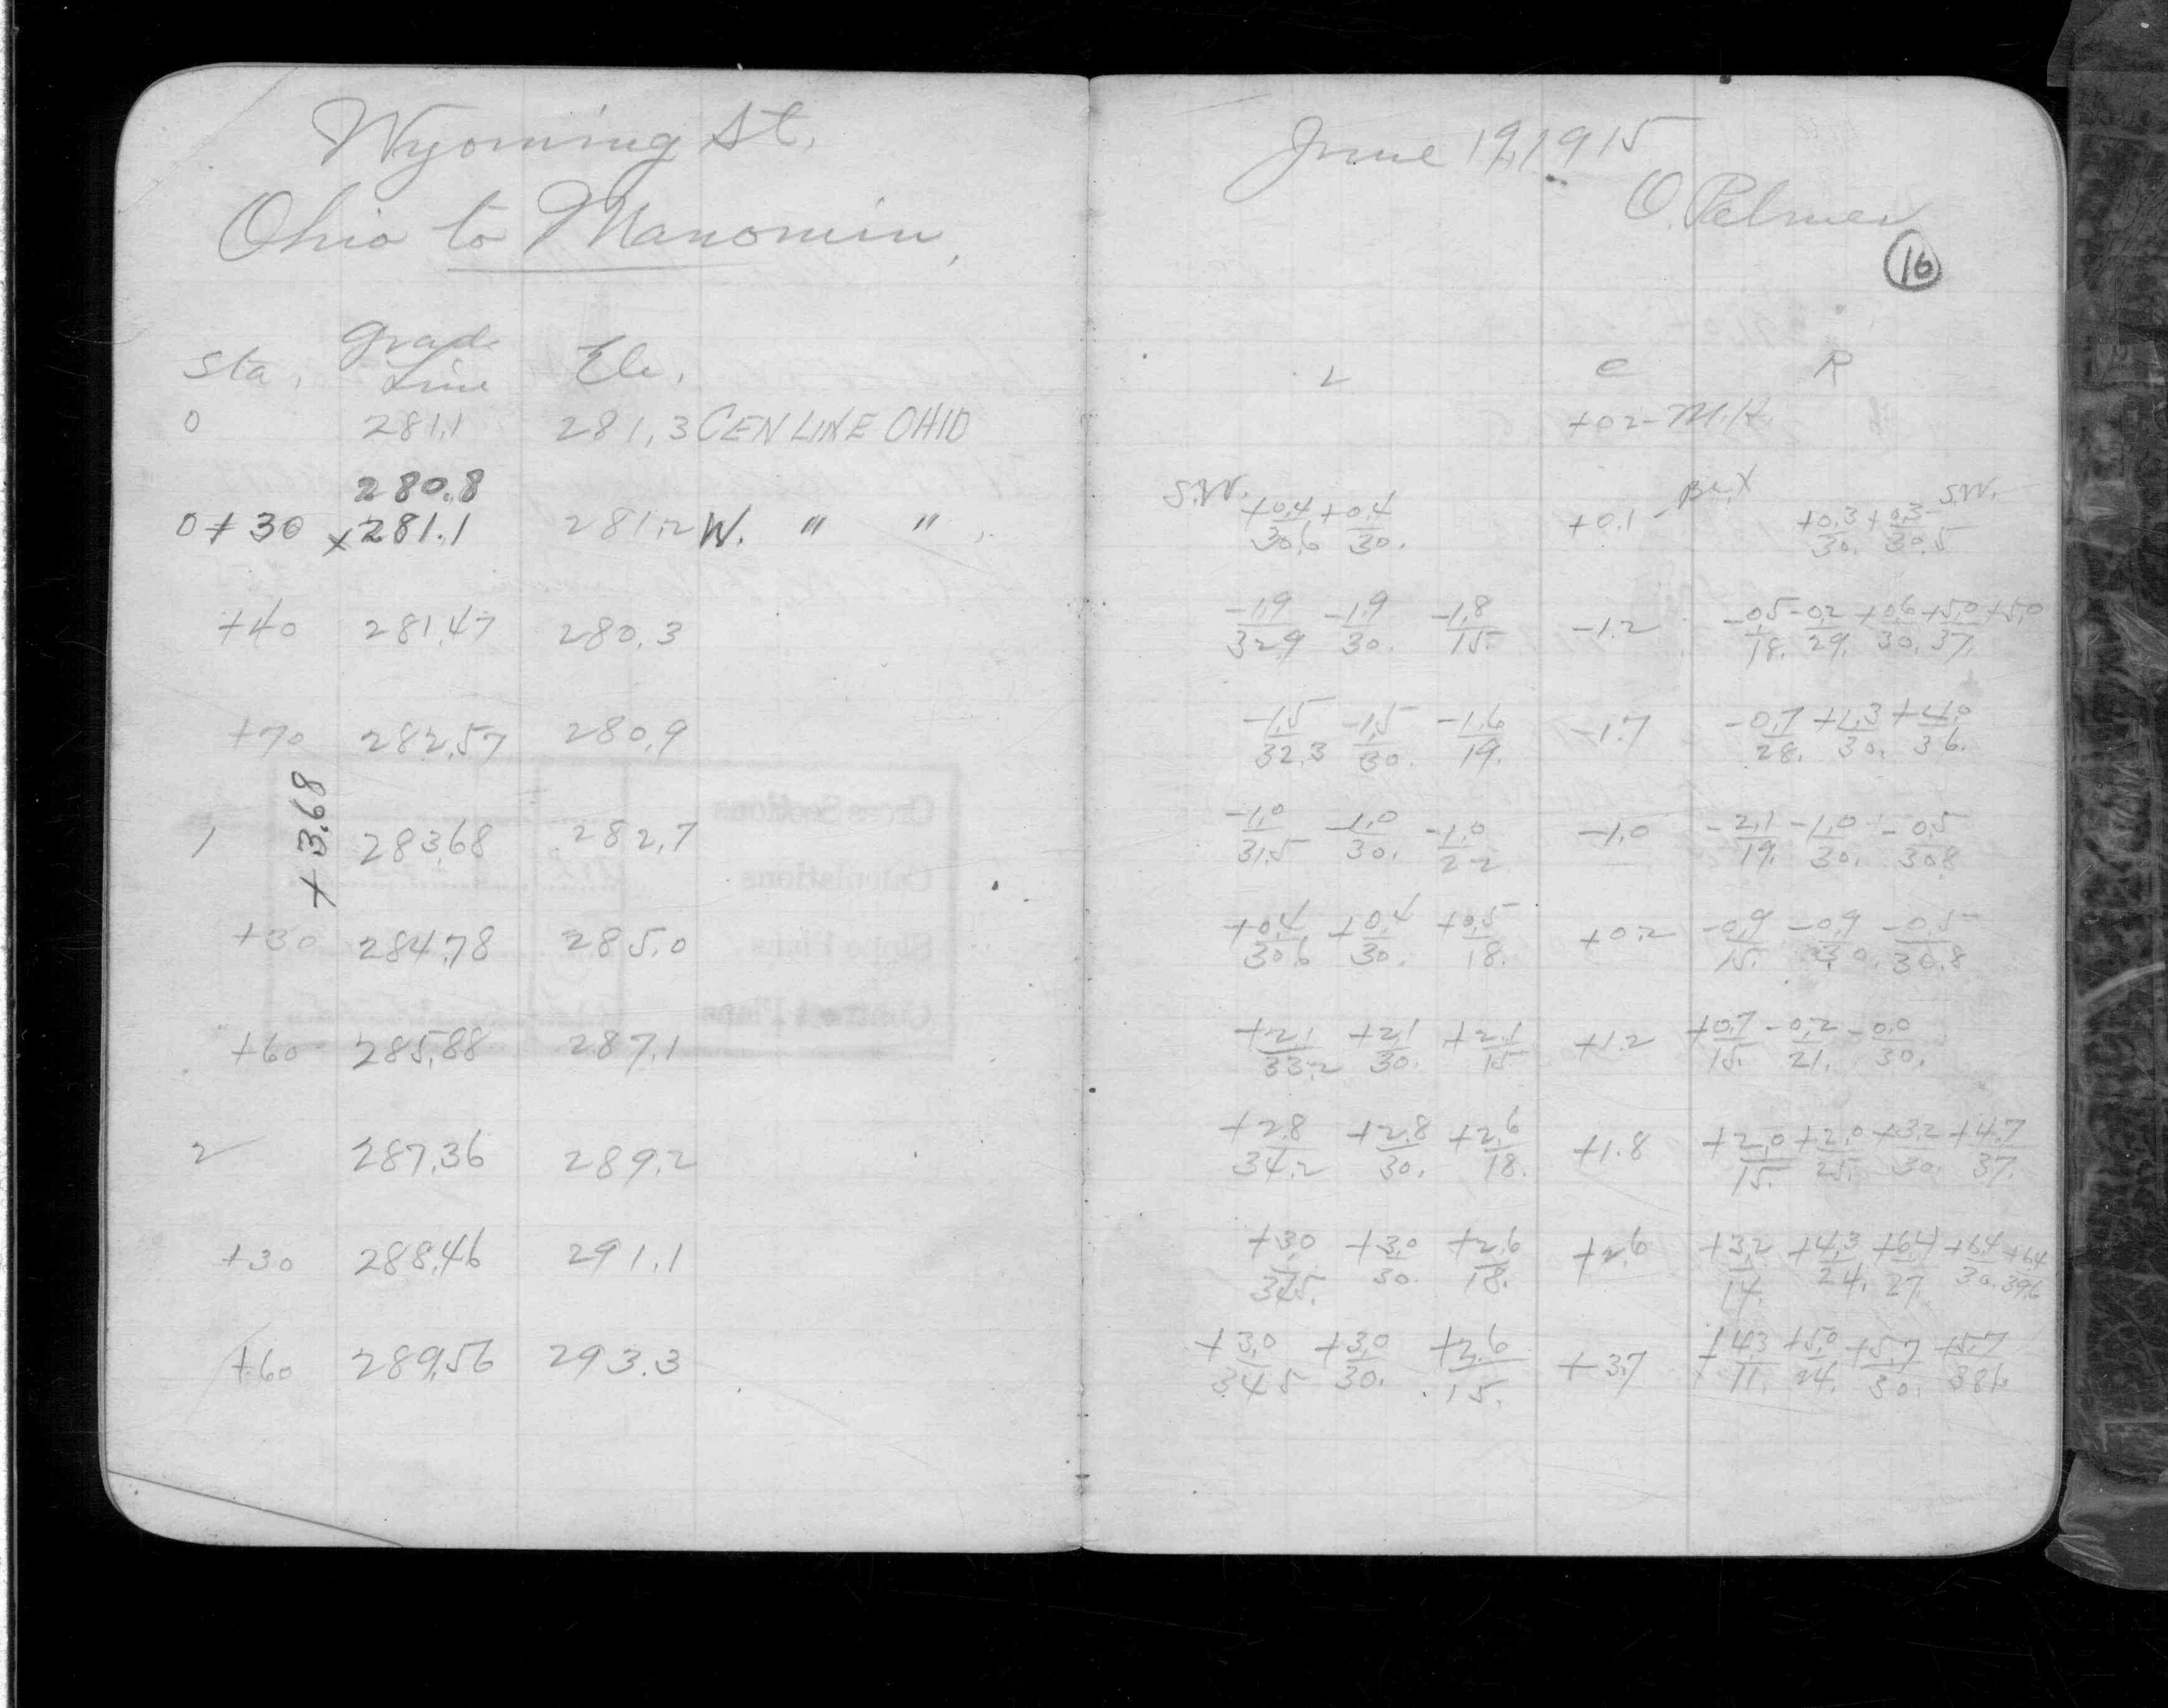 Wyoming St.
Ohio to Manomin,
Sta. Grade Line Ele.
0 281.1 281.3 CEN LINE OHIO
280.8
0+30 x281.1 281.2 W. " "
+40 281.47 280.3
+70 282.57 280.9
+3.68
1 283.68 282.7
+30 284.78 285.0
+60 285.88 287.1
2 287.36 289.2
+30 288.46 291.1
+60 289.56 293.3
June 19, 1915
O. Palmer
16
L C R
+02- M.H.
S.W. +0.4/30.6 +0.4/30. +0.1 +0.3/30. +0.3/30.5 S.W.
-1.9/32.9 -1.9/30. -1.8/15. -1.2 -0.5/18. -0.2/29. +0.6/30. +5.0/37. +5.0
-1.5/32.3 -1.5/30. -1.6/19. -1.7 -0.7/28. +1.3/30. +4.0/36.
-1.0/31.5 -1.0/30. -1.0/22 -1.0 -2.1/19. -1.0/30. -0.5/30.8
+0.4/30.6 +0.4/30. +0.5/18. +0.2 -0.9/15. -0.9/30. -0.5/30.8
+2.1/33.2 +2.1/30. +2.1/15 +1.2 +0.7/15. -0.2/21. -0.0/30.
+2.8/34.2 +2.8/30. +2.6/18. +1.8 +2.0/15. +2.0/25. +3.2/30. +4.7/37.
+3.0/34.5. +3.0/30. +2.6/18. +2.6 +3.2/14. +4.3/24. +6.4/27. +6.4/30. +6.4/39.6
+3.0/34.5 +3.0/30. +2.6/15. +3.7 +4.3/11. +5.0/24. +5.7/30. +5.7/38.6